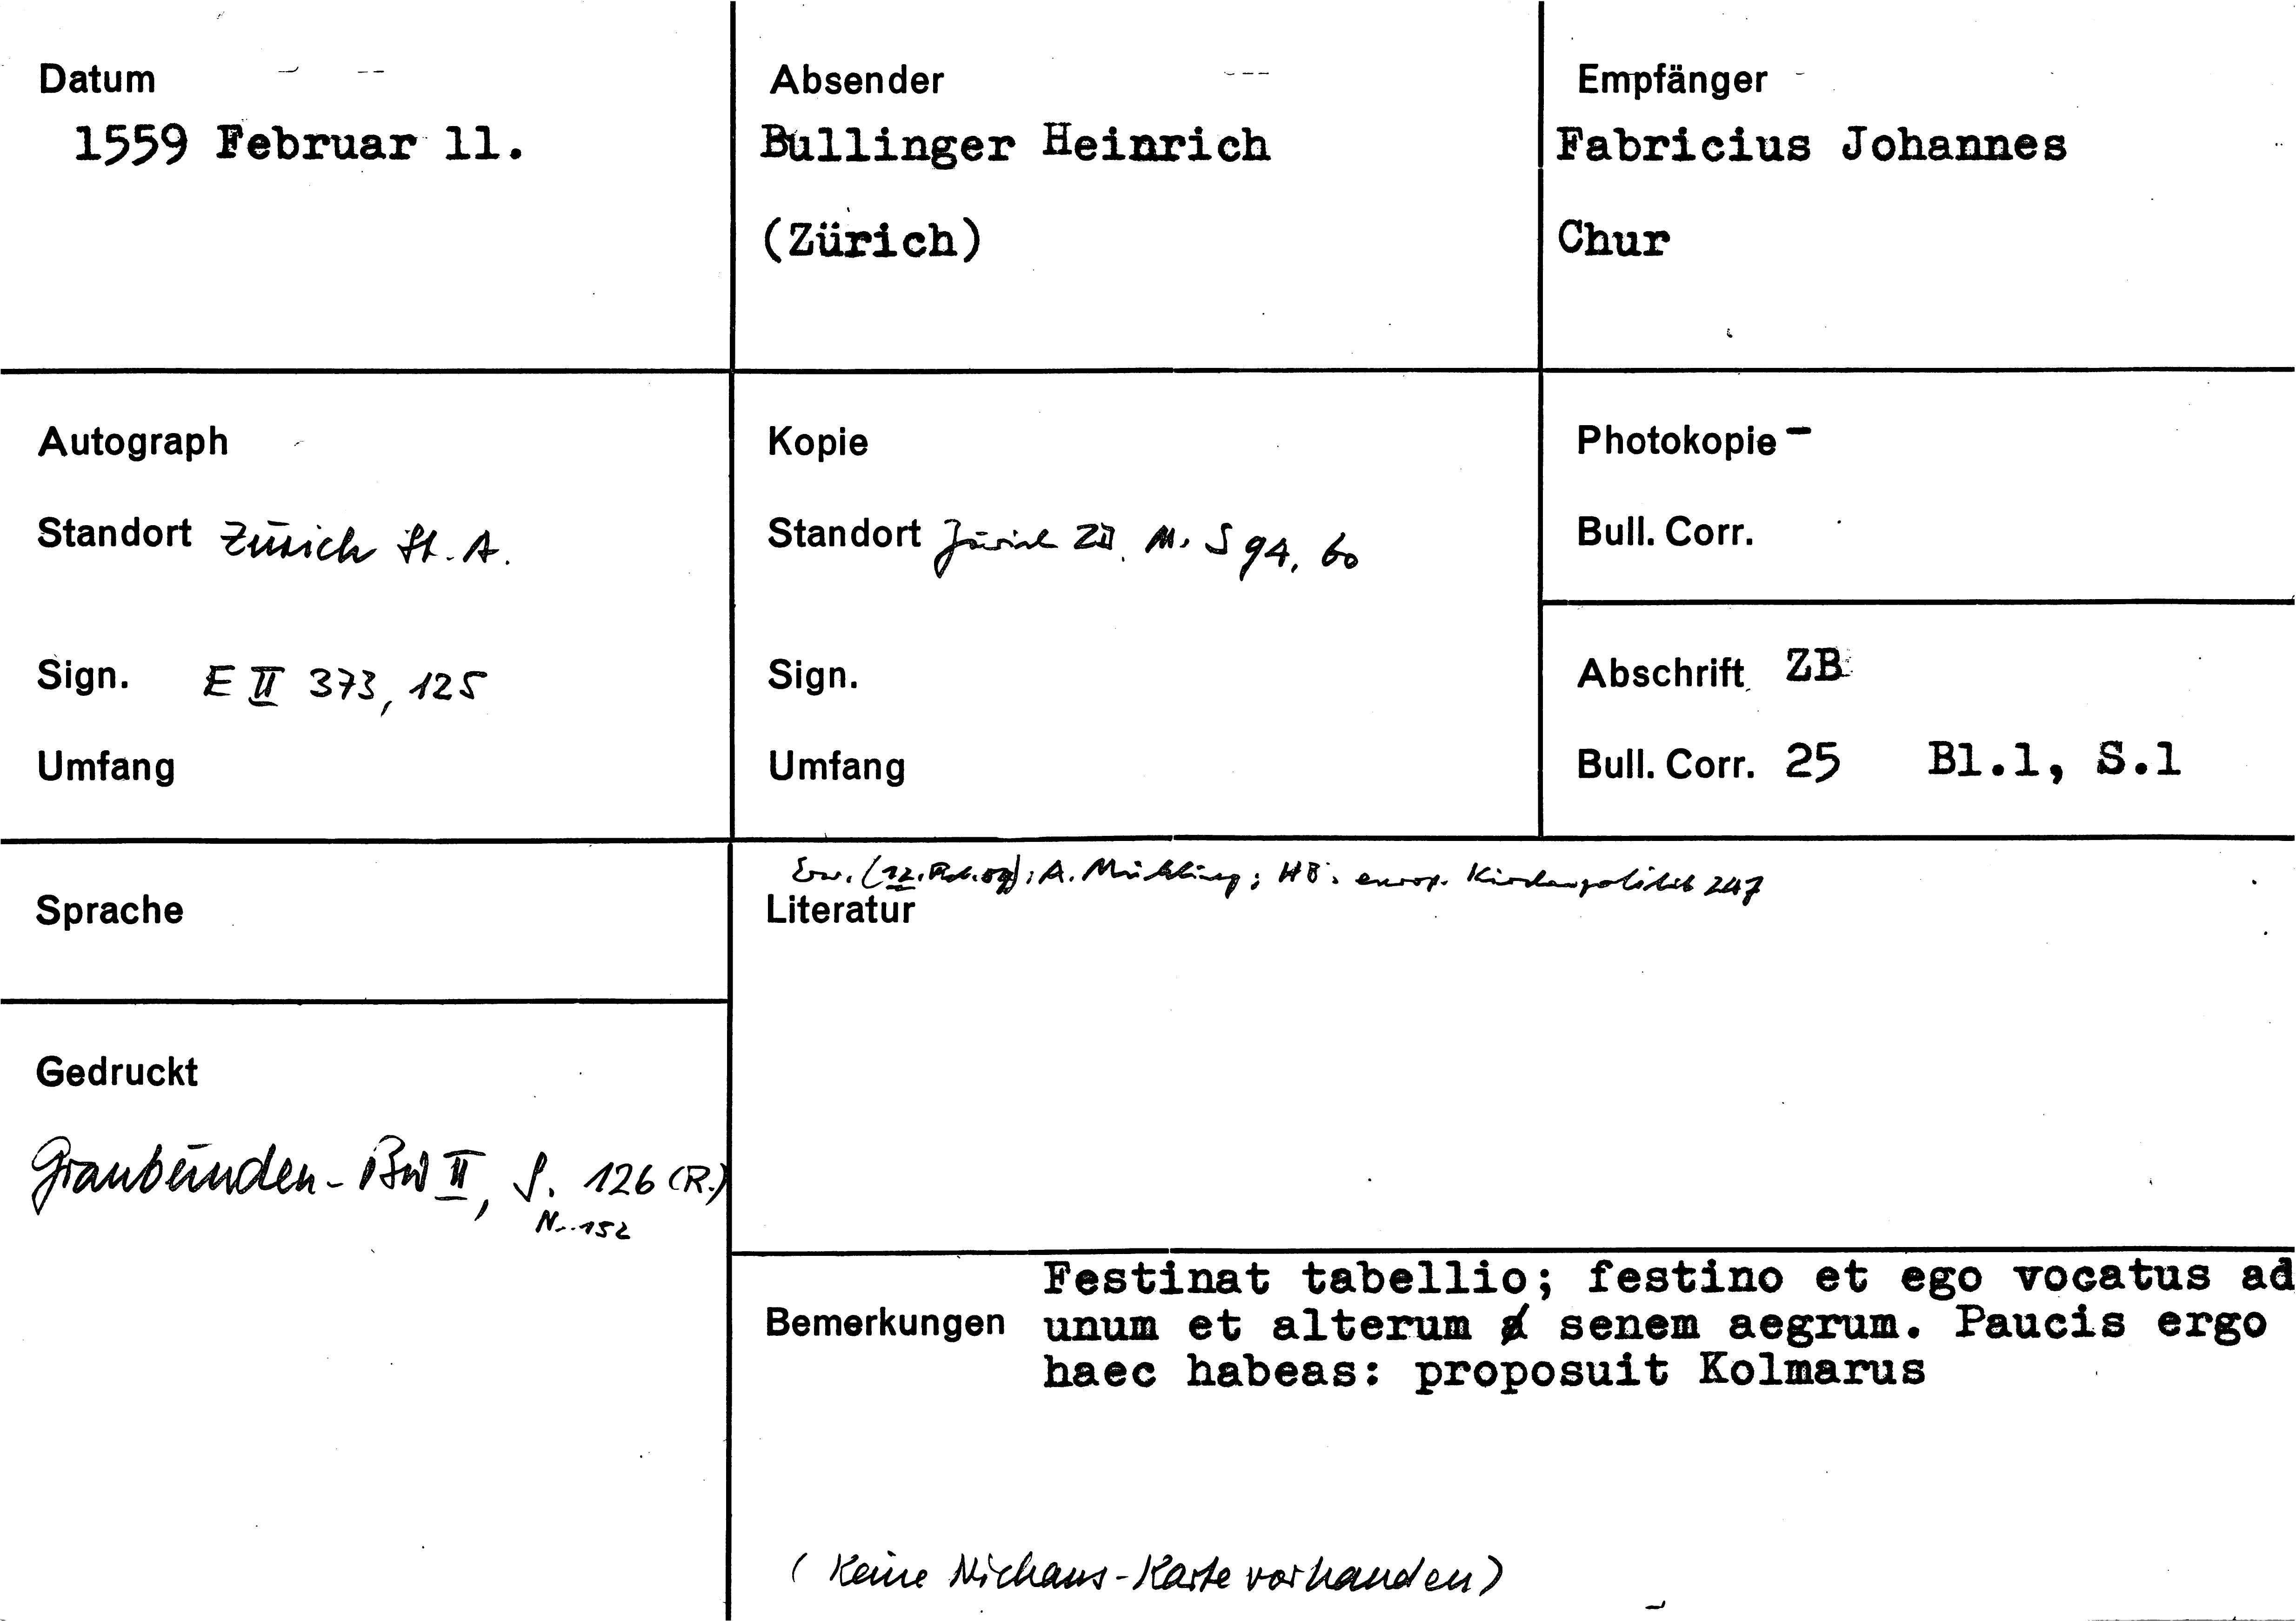 Datum
1559 Februar 11.
Absender
Bullinger Heinrich
(Zürich)
Empfänger
Fabricius Johannes
Chur
Autograph
Standort Zürich St. A.
Sign. E II 373, 125
Umfang
Kopie
Standort Zürich ZB. M. S 94, 60
Sign.
Umfang
Photokopie -
Bull. Corr.
Abschrift ZB
Bull. Corr. 25 Bl.1, S.1
Sprache
Erw. A. Mühling; HB. europ. Kirchenpolitik 247
Literatur
Gedruckt
Graubünden-BW II, S. 126 (R.)
Nr. 152
Festinat tabellio; festino et ego vocatus ad
Bemerkungen unum et alterum senem aegrum. Paucis ergo
haec habeas: proposuit Kolmarus
(Keine Niehaus-Karte vorhanden)